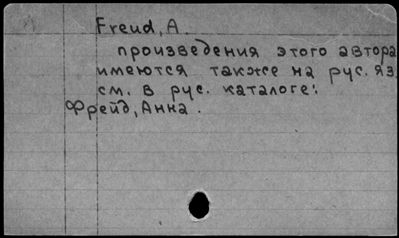 Freud, A.
произведения этого автора
имеются также на рус. яз.
см. в рус. каталоге:
Фрейд, Анна.